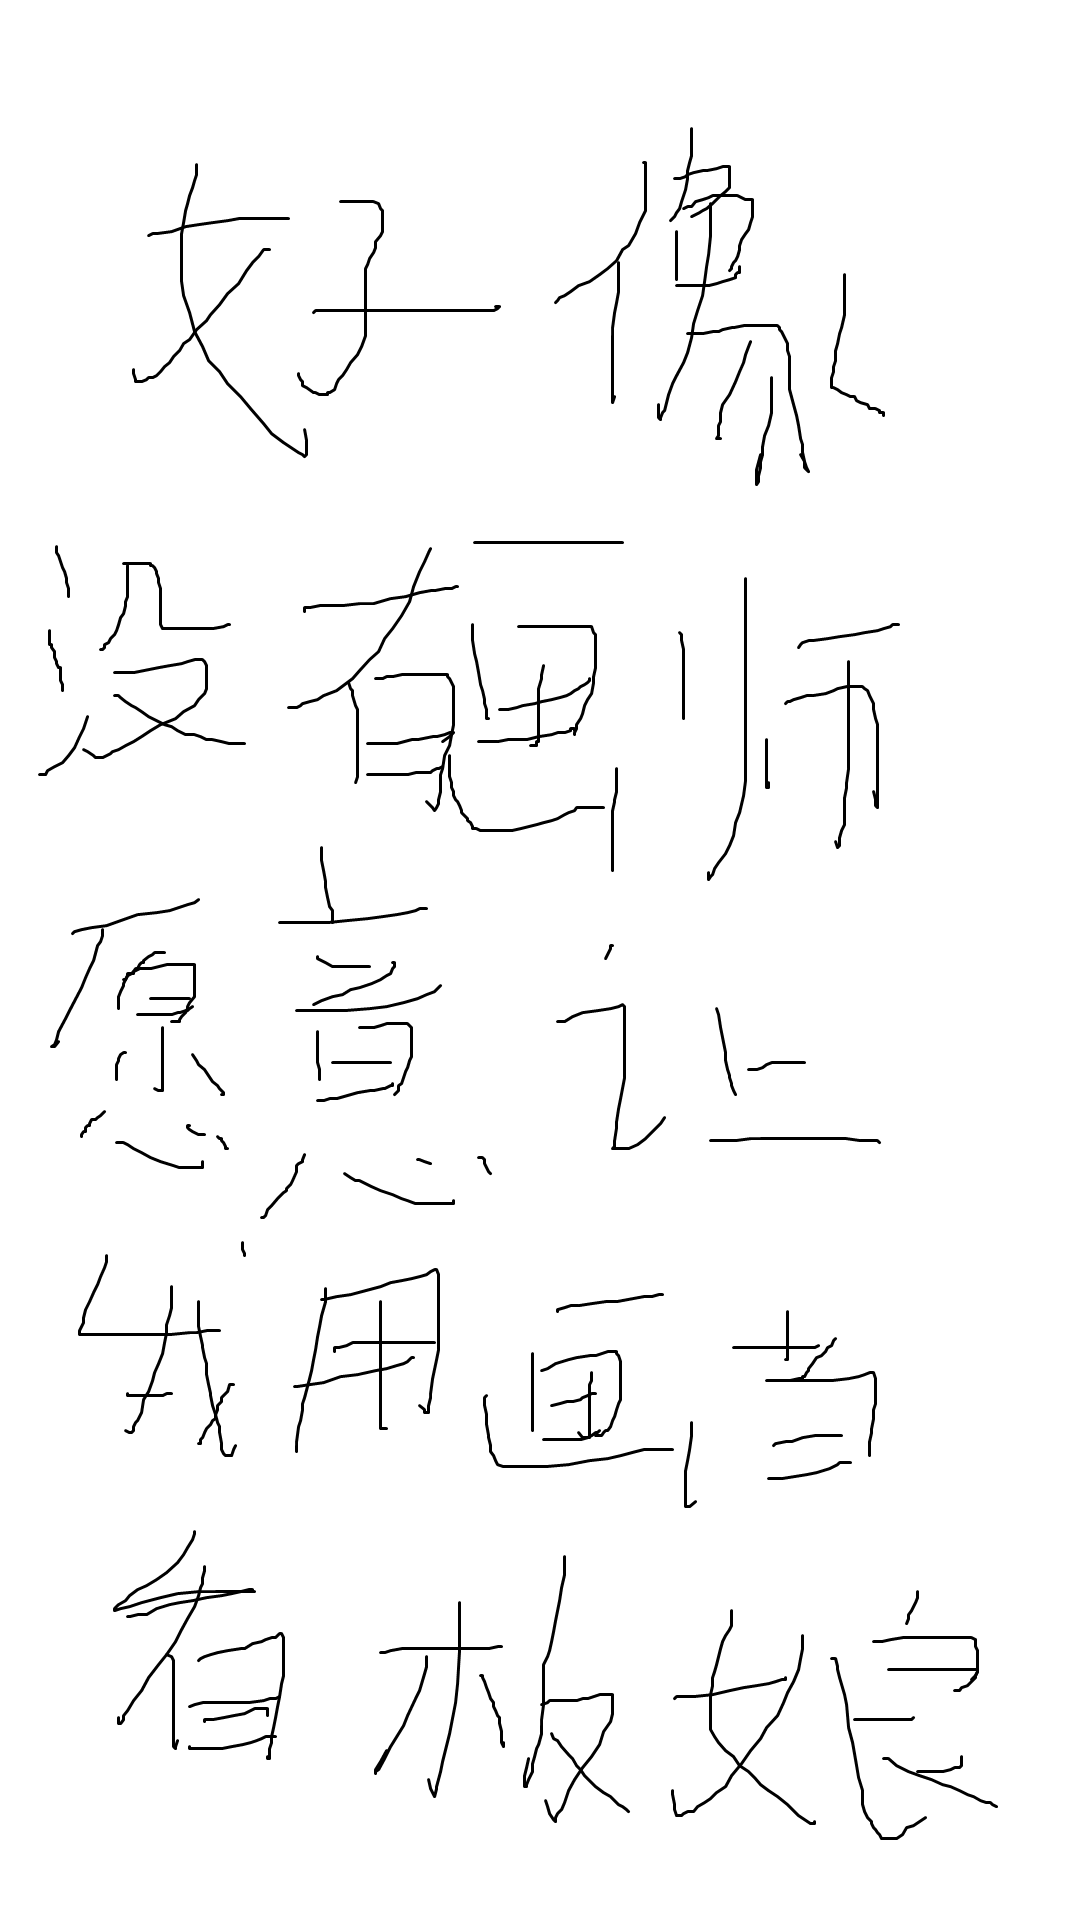 好像
没有画师
愿意让
我用画当
看板娘